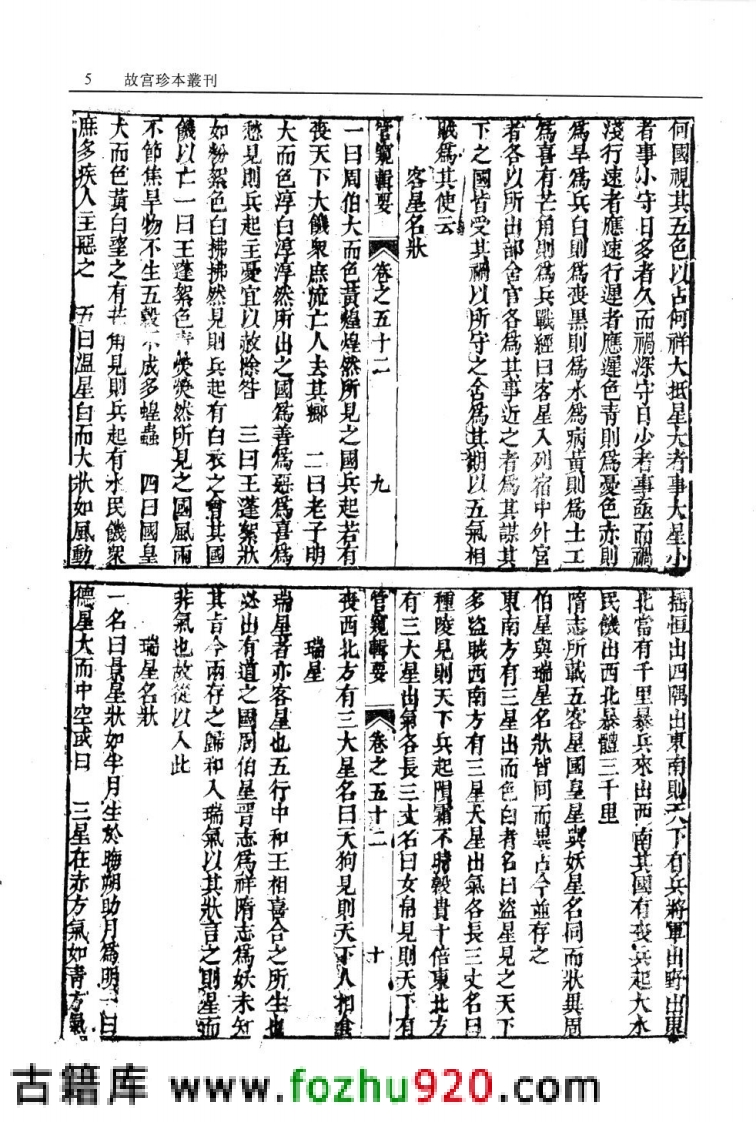 5 故宫珍本叢刊
何國視其五色以占何祥大抵星大者事大星小
者事小守日多者久而禍深守日少者事亟而禍
淺行速者應速行遲者應遲色青則為憂色赤則
為旱為兵白則為喪黑則為水為病黃則為土工
為喜有芒角則為兵戰經曰客星入列宿中外官
者各以所出部舍官各為其事近之者為其謀其
下之國皆受其禍以所守之舍為其期以五氣相
賊為其使云
客星名狀
管窺輯要 卷之五十二 九
一曰周伯大而色黃煌煌然所見之國兵起若有
喪天下大饑衆庶流亡人去其鄉 二曰老子明
大而色淳白淳淳然所出之國為善為惡為喜為
愁見則兵起主憂宜以赦除咎 三曰王蓬絮狀
如粉絮色白拂拂然見則兵起有白衣之會其國
饑以亡一曰王蓬絮色青熒熒然所見之國風雨
不節焦旱物不生五穀不成多蝗蟲 四曰國皇
大而色黃白望之有芒角見則兵起有水民饑衆
庶多疾人主惡之 五曰溫星白而大狀如風動
搖恒出四隅出東南則天下有兵將軍出野出東
北當有千里暴兵來出西南其國有喪兵起大水
民饑出西北暴體三千里
隋志所載五客星國皇星與妖星名同而狀異周
伯星與瑞星名狀皆同而異占今並存之
東南方有三星出而色白者名曰盜星見之天下
多盜賊西南方有三星大星出氣各長三丈名曰
種陵見則天下兵起隕霜不時穀貴十倍東北方
有三大星出氣各長三丈名曰女帛見則天下有
管窺輯要 卷之五十二 十
喪西北方有三大星名曰天狗見則天下人相食
瑞星
瑞星者亦客星也五行中和王相喜合之所生也
必出有道之國周伯星晉志為祥隋志為妖未知
其旨今兩存之歸和入瑞氣以其狀言之則星而
非氣也故從以入此
瑞星名狀
一名曰景星狀如半月生於晦朔助月為明一曰
德星大而中空或曰 三星在赤方氣如青方氣
古籍库 www.fozhu920.com